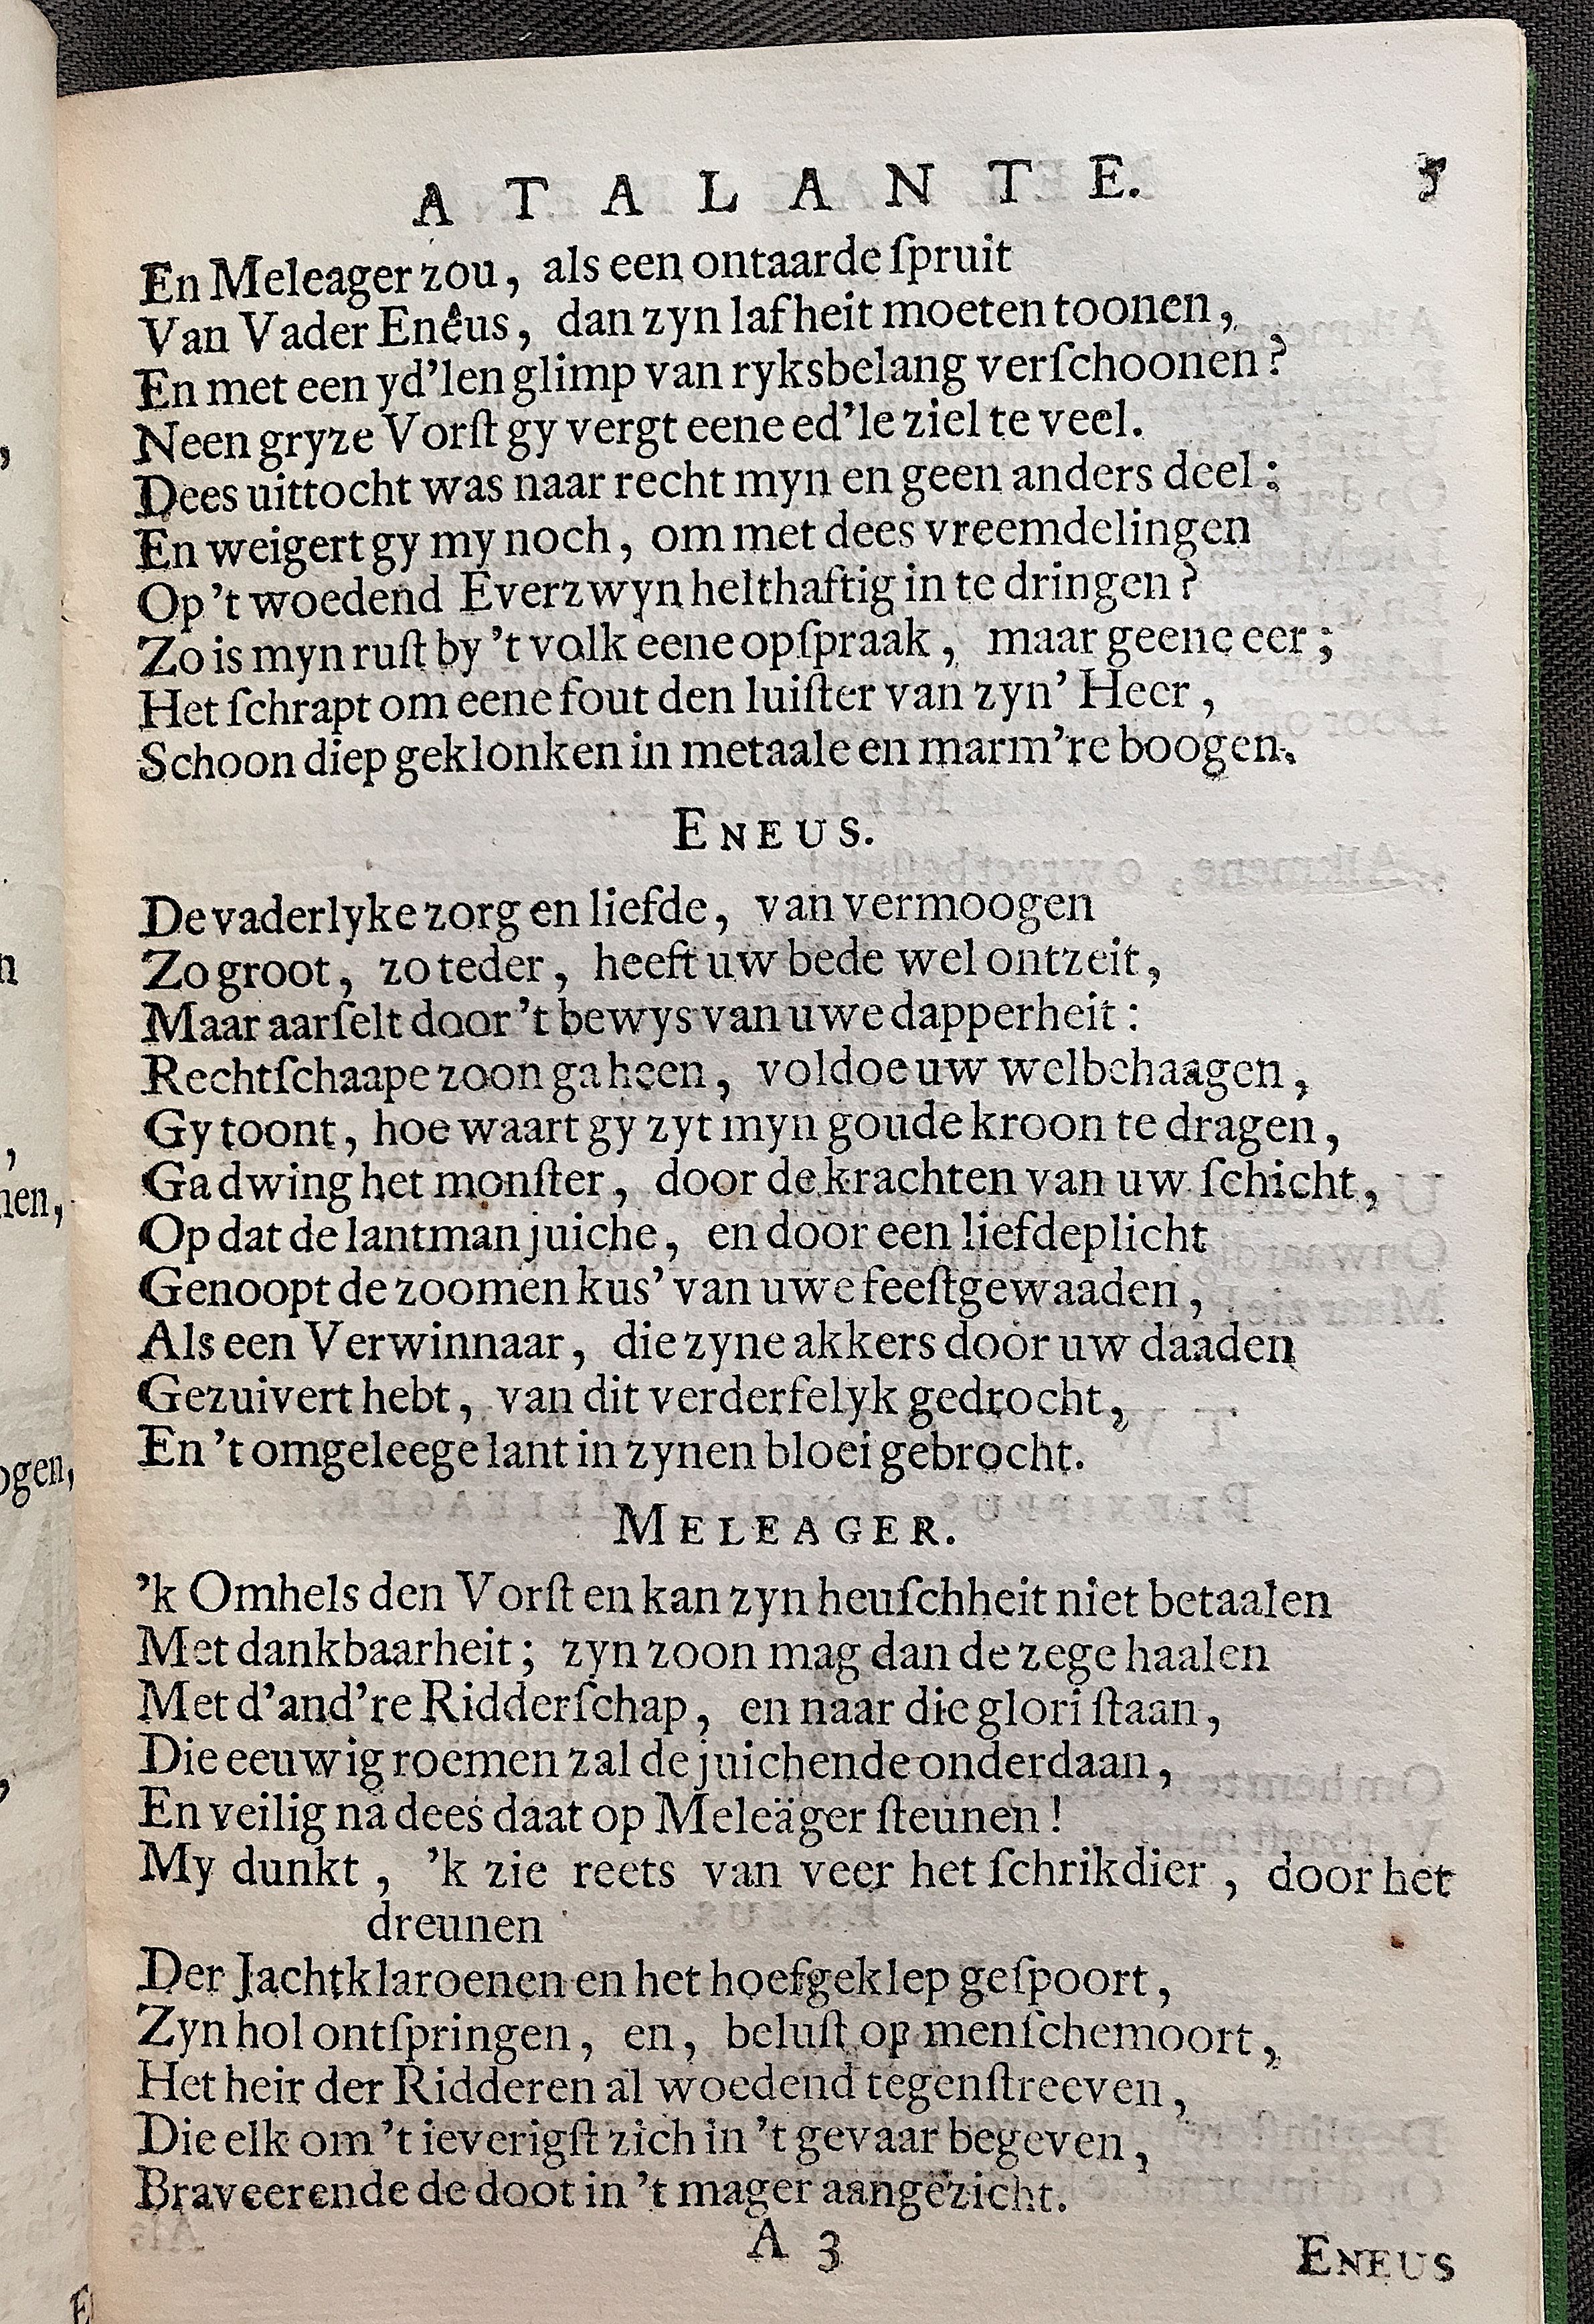 A T A L A N T E. 5
En Meleager zou, als een ontaarde ſpruit
Van Vader Enêus, dan zyn lafheit moeten toonen,
En met een yd'len glimp van ryksbelang verſchoonen?
Neen gryze Vorſt gy vergt eene ed'le ziel te veel.
Dees uittocht was naar recht myn en geen anders deel:
En weigert gy my noch, om met dees vreemdelingen
Op 't woedend Everzwyn helthaftig in te dringen?
Zo is myn ruſt by 't volk eene opſpraak, maar geene eer;
Het ſchrapt om eene fout den luiſter van zyn' Heer,
Schoon diep geklonken in metaale en marm're boogen.
ENEUS.
De vaderlyke zorg en liefde, van vermoogen
Zo groot, zo teder, heeft uw bede wel ontzeit,
Maar aarſelt door 't bewys van uwe dapperheit:
Rechtſchaape zoon ga heen, voldoe uw welbehaagen,
Gy toont, hoe waart gy zyt myn goude kroon te dragen,
Ga dwing het monſter, door de krachten van uw ſchicht,
Op dat de lantman juiche, en door een liefdeplicht
Genoopt de zoomen kus' van uwe feeſtgewaaden,
Als een Verwinnaar, die zyne akkers door uw daaden
Gezuivert hebt, van dit verderfelyk gedrocht,
En 't omgeleege lant in zynen bloei gebrocht.
MELEAGER.
'k Omhels den Vorſt en kan zyn heuſchheit niet betaalen
Met dankbaarheit; zyn zoon mag dan de zege haalen
Met d'and're Ridderſchap, en naar die glori ſtaan,
Die eeuwig roemen zal de juichende onderdaan,
En veilig na dees daat op Meleäger ſteunen!
My dunkt, 'k zie reets van veer het ſchrikdier, door het
dreunen
Der Jachtklaroenen en het hoefgeklep geſpoort,
Zyn hol ontſpringen, en, beluſt op menſchemoort,
Het heir der Ridderen al woedend tegenſtreeven,
Die elk om 't ieverigſt zich in 't gevaar begeven,
Braveerende de doot in 't mager aangezicht.
A 3
ENEUS